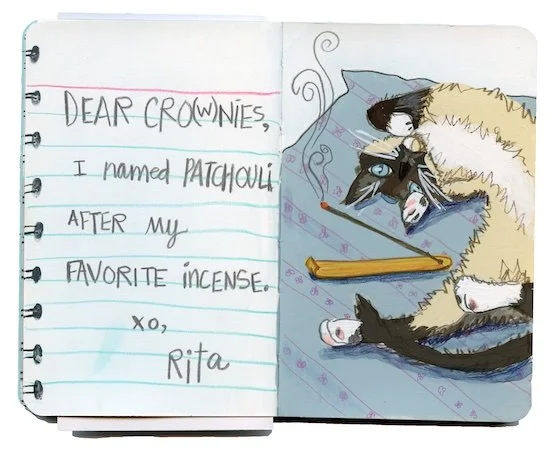 DEAR CRO(W)NIES,
I named PATCHOULI
AFTER My
FAVORITE iNCENSE.
xo,
Rita